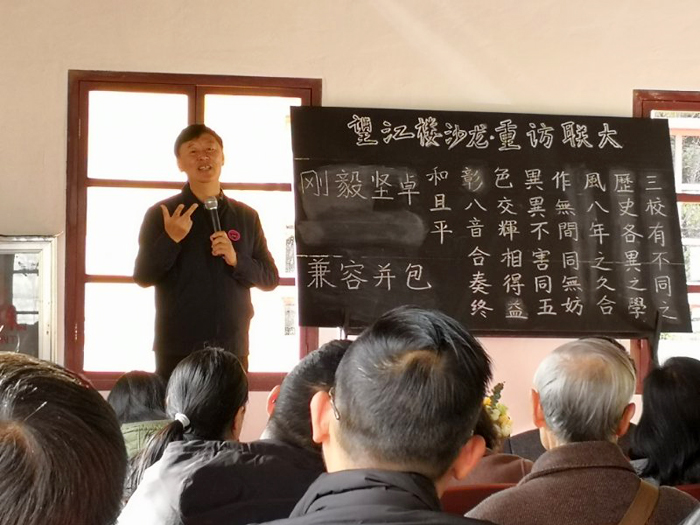 望江楼沙龙·重访联大
三校有不同之
歷史各異之學
風八年之久合
作無間同無妨
異異不害同五
色交輝相得益
彰八音合奏終
和且平
刚毅坚卓
兼容并包